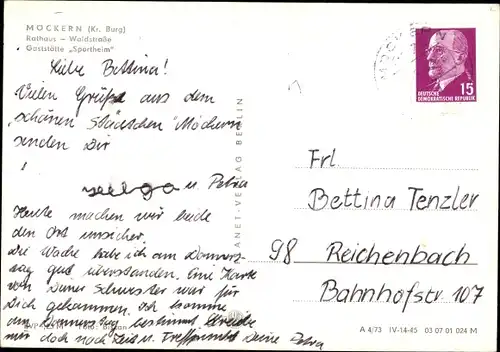 MÖCKERN (Kr. Burg)
Rathaus – Waldstraße
Gaststätte „Sportheim"
Liebe Bettina!
Vielen Grüße aus dem
„schönen Städtchen" Möckern
senden Dir
u. Petra
Heute machen wir beide
den Ort unsicher.
Die Wache habe ich am Donners-
tag gut überstanden. Eine Karte
von Deiner Schwester war für
Dich gekommen. Ich komme
am Donnerstag bestimmt. Schreibe
mir doch noch Zeit u. Treffpunkt Deine Petra
PLANET-VERLAG BERLIN
15
DEUTSCHE
DEMOKRATISCHE REPUBLIK
Frl.
Bettina Tenzler
98 Reichenbach
Bahnhofstr. 107
A 4/73 IV-14-45 03 07 01 024 M